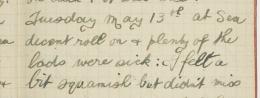 Tuesday May 13th at Sea
decent roll on & plenty of the
lads were sick: I felt a
bit squamish but didn't miss